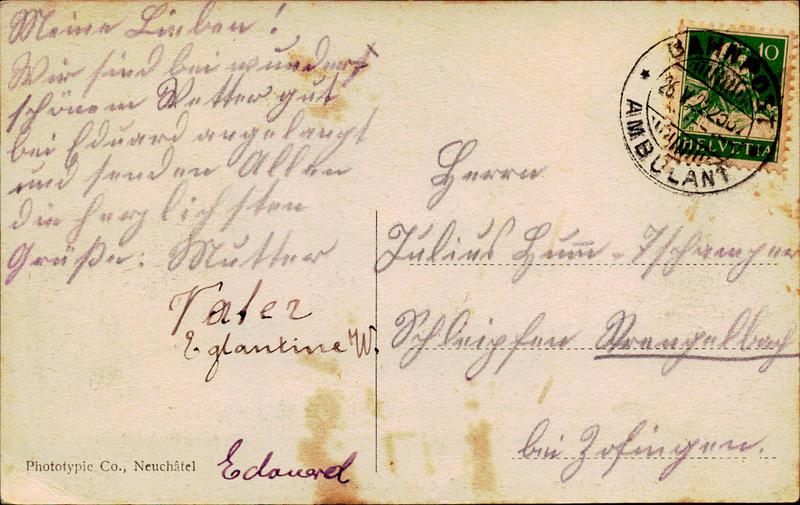 Meine Lieben!
Wir sind bei wunder
schönem Wetter gut
bei Eduard angelangt
und senden Allen
die herzlichsten
Grüße: Mutter
Vater
Eglantine W.
Edouard
Phototypie Co., Neuchâtel
BAHNPOST
AMBULANT
10
HELVETIA
Herrn
Julius Humm-Tschamper
Schleipfen Strengelbach
bei Zofingen.